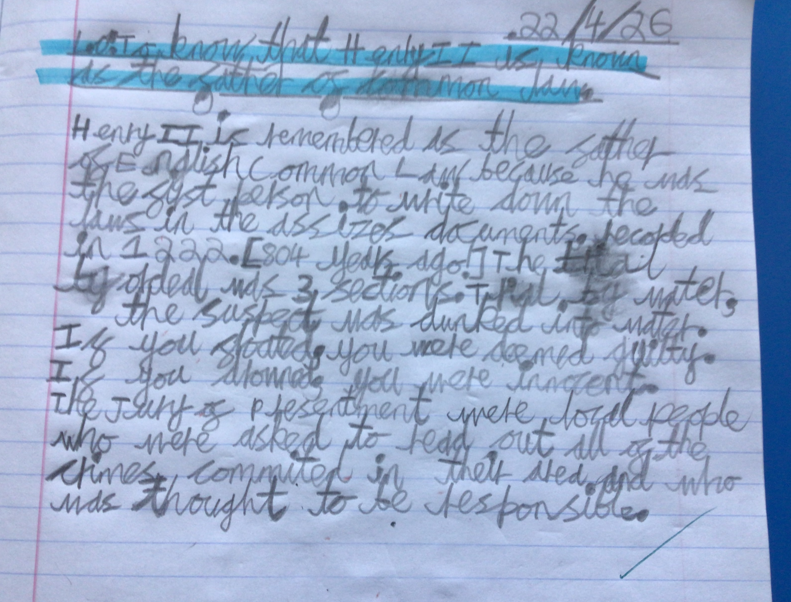 .22/4/26
L.O.To know that Henry II is known
as the father of common law.
Henry II is remembered as the father
of English Common Law because he was
the fyst person to write down the
laws in the assizes documents recorded
in 1222.[804 years ago!] The trial
by ordeal was 3 sections. Trial by water,
the suspect was dunked into water.
If you floated, you were deemed guilty.
If you drowned, you were innocent.
The Jury of Presentment were local people
who were asked to read out all of the
crimes commited in their area and who
was thought to be responsible.